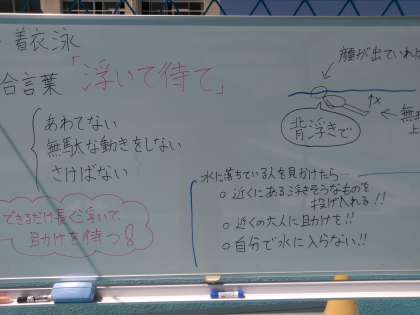 着衣泳
合言葉「浮いて待て」
あわてない
無駄な動きをしない
さけばない
できるだけ長く浮いて、
助けを待つ
顔が出ていれば
背浮きで
水に落ちている人を見かけたら…
○近くにある浮きそうなものを
投げ入れる!!
○近くの大人に助けを!!
○自分で水に入らない!!